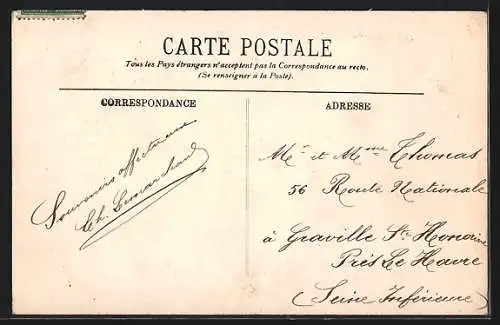 CARTE POSTALE
Tous les Pays étrangers n'acceptent pas la Correspondance au recto.
(Se renseigner à la Poste).
CORRESPONDANCE
Souvenirs affectueux
Ch. Lemarchand
ADRESSE
Mr et Mme Thomas
56 Route Nationale
à Graville Ste Honorine
Près Le Havre
(Seine Inférieure)